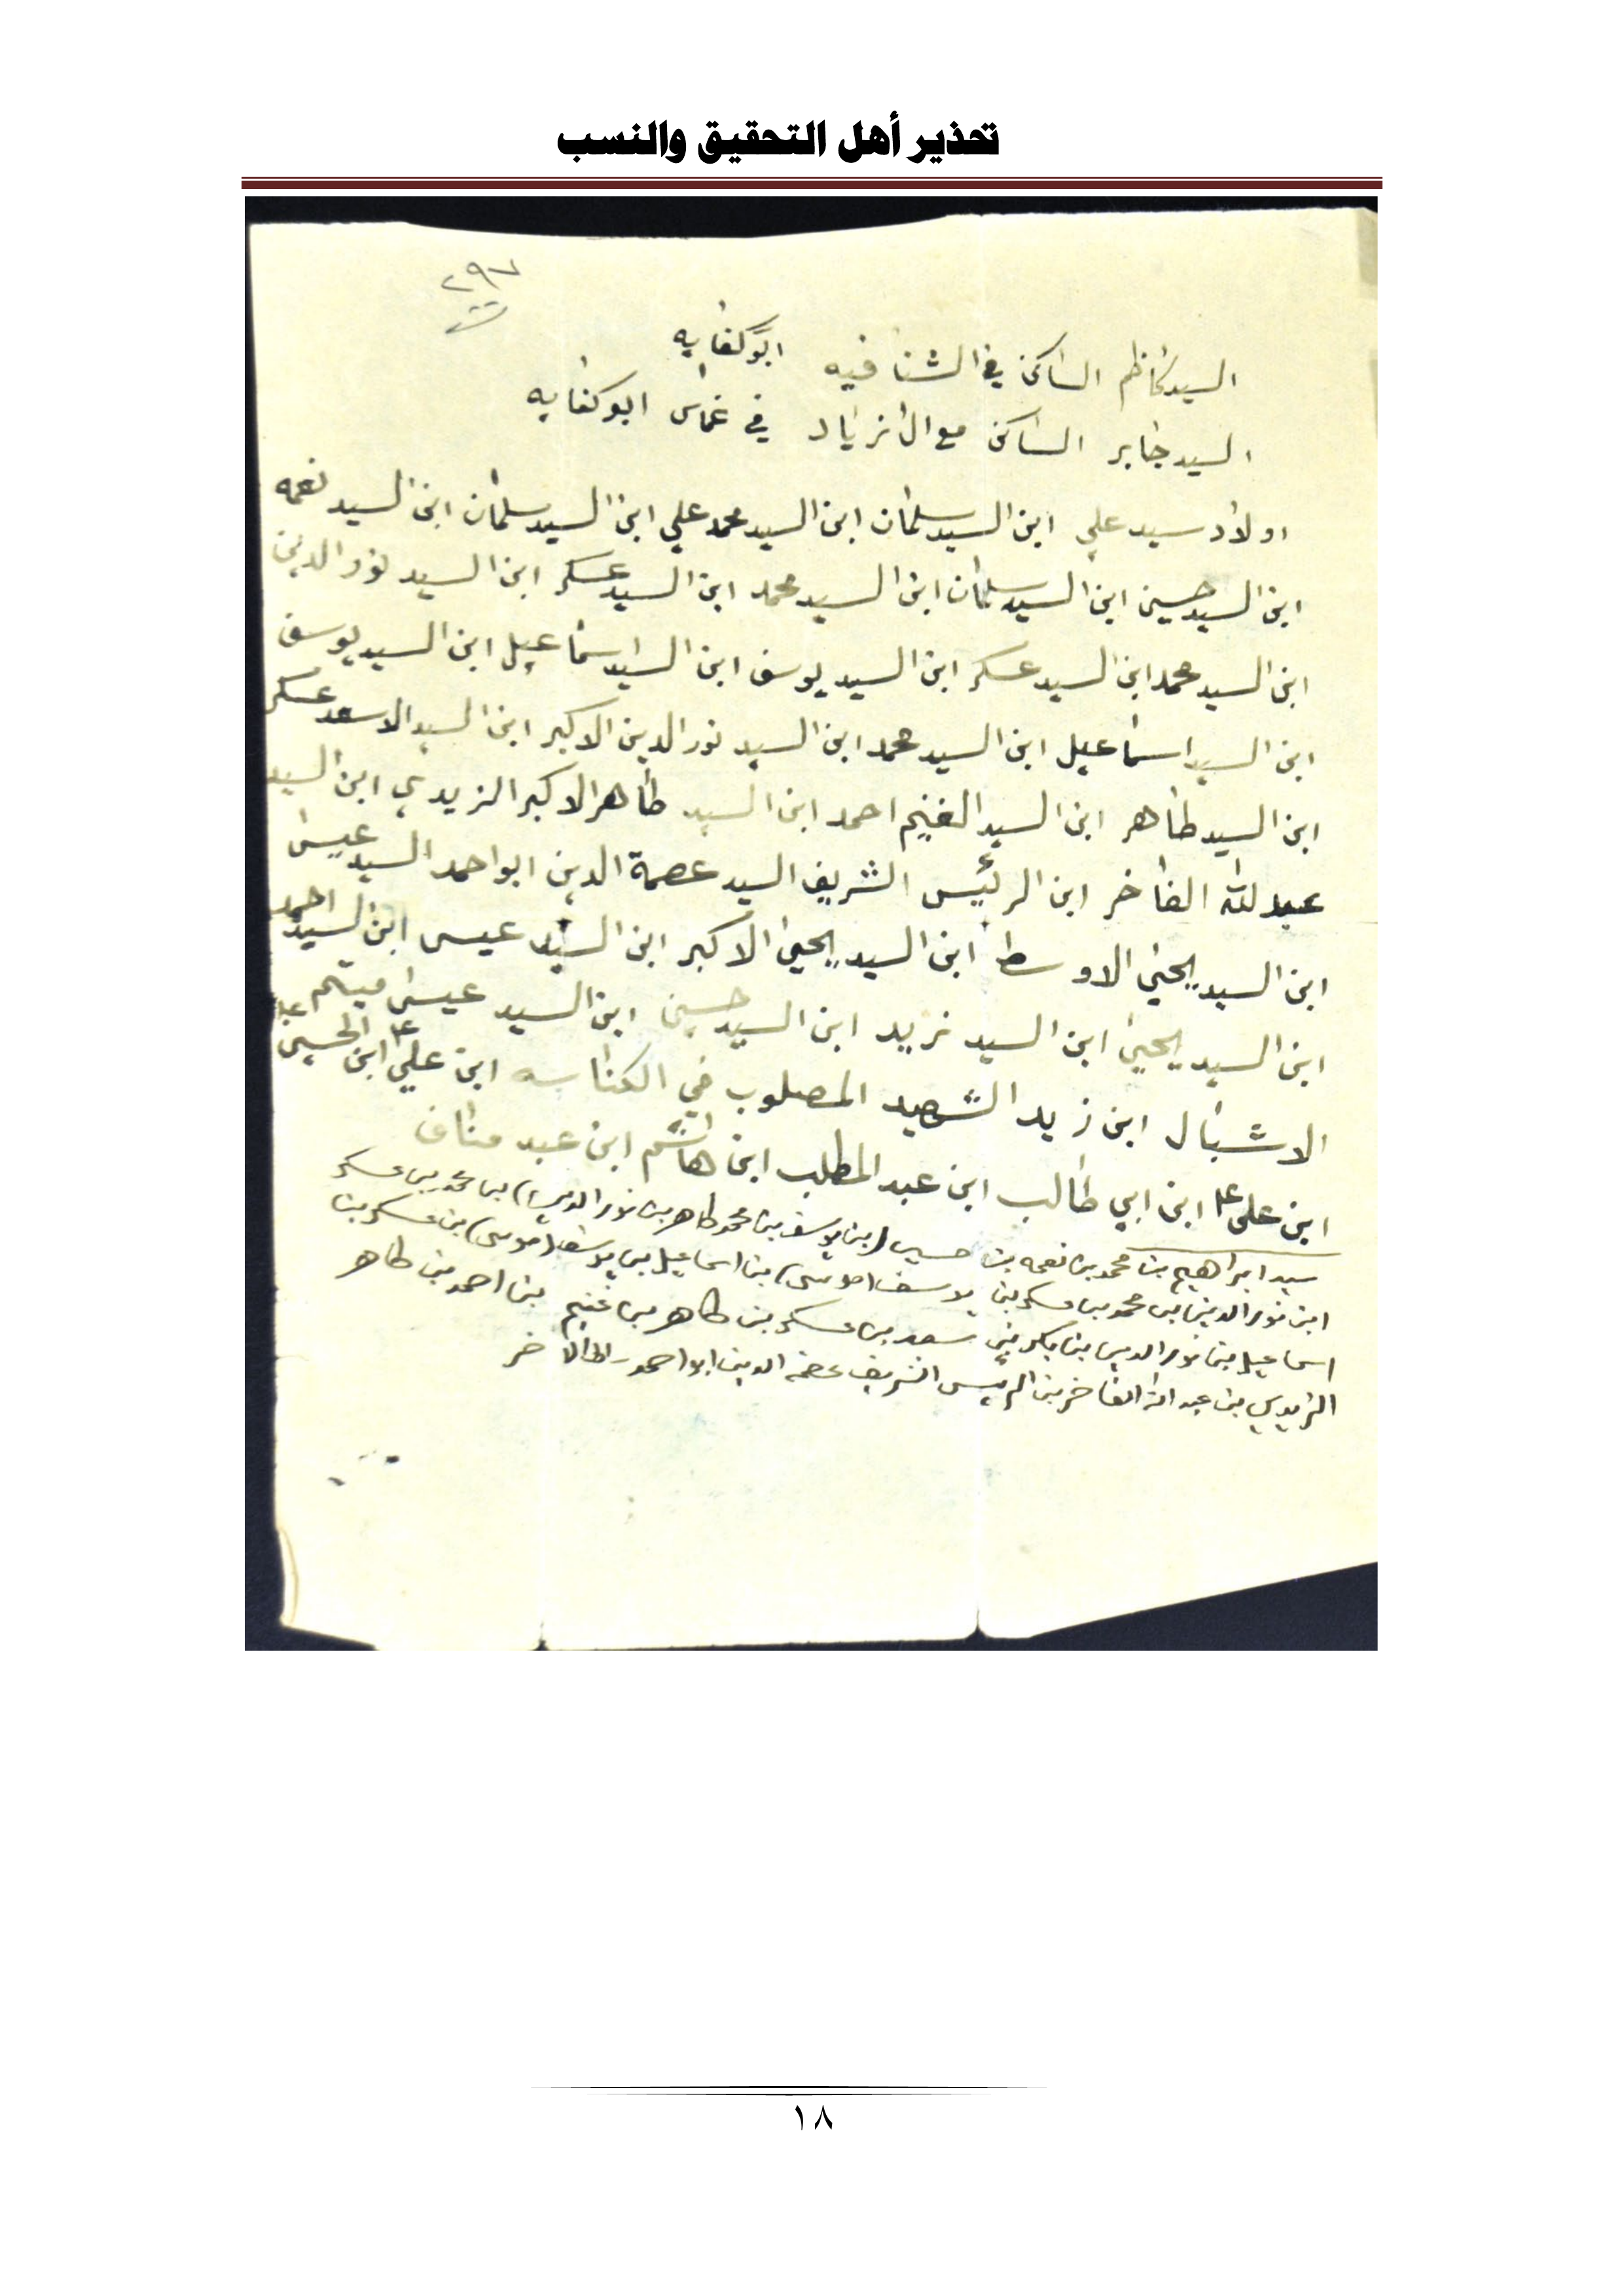 تحذير أهل التحقيق والنسب
٢٩٧
السيد كاظم الساكن في الشنافيه ابو كفايه
السيد جابر الساكن مع ال زياد في غماس ابو كفايه
اولاد سيد علي ابن السيد سلمان ابن السيد محمد علي ابن السيد سلمان ابن السيد نعمه
ابن السيد حسين ابن السيد سلمان ابن السيد محمد ابن السيد عسكر ابن السيد نور الدين
ابن السيد محمد ابن السيد عسكر ابن السيد يوسف ابن السيد اسماعيل ابن السيد يوسف
ابن السيد اسماعيل ابن السيد محمد ابن السيد نور الدين الاكبر ابن السيد الاسعد عسكر
ابن السيد طاهر ابن السيد الغنيم احمد ابن السيد طاهر الاكبر الزيدي ابن السيد
عبد لله الفاخر ابن الرئيس الشريف السيد عصمة الدين ابو احمد السيد عيسى
ابن السيد يحيى الاوسط ابن السيد يحيى الاكبر ابن السيد عيسى ابن السيد احمد
ابن السيد يحيى ابن السيد زيد ابن السيد حسين ابن السيد عيسى ميتم
الاشبال ابن زيد الشهيد المصلوب في الكناسه ابن علي ابن الحسين
ابن علي ابن ابي طالب ابن عبد المطلب ابن هاشم ابن عبد مناف
سيد ابراهيم بن محمد بن نعمه بن حسين (بن يوسف بن محمد طاهر بن نور الدين) بن محمد بن عسكر
ابن نور الدين بن محمد بن عسكر بن يوسف (موسى) بن اسماعيل بن يوسف (موسى) بن عسكر بن
اسماعيل بن نور الدين بن سعد بن عسكر بن طاهر بن غنيم بن احمد بن طاهر
الزيدي بن عبد الله الفاخر بن الرئيس الشريف عصمة الدين ابو احمد
١٨